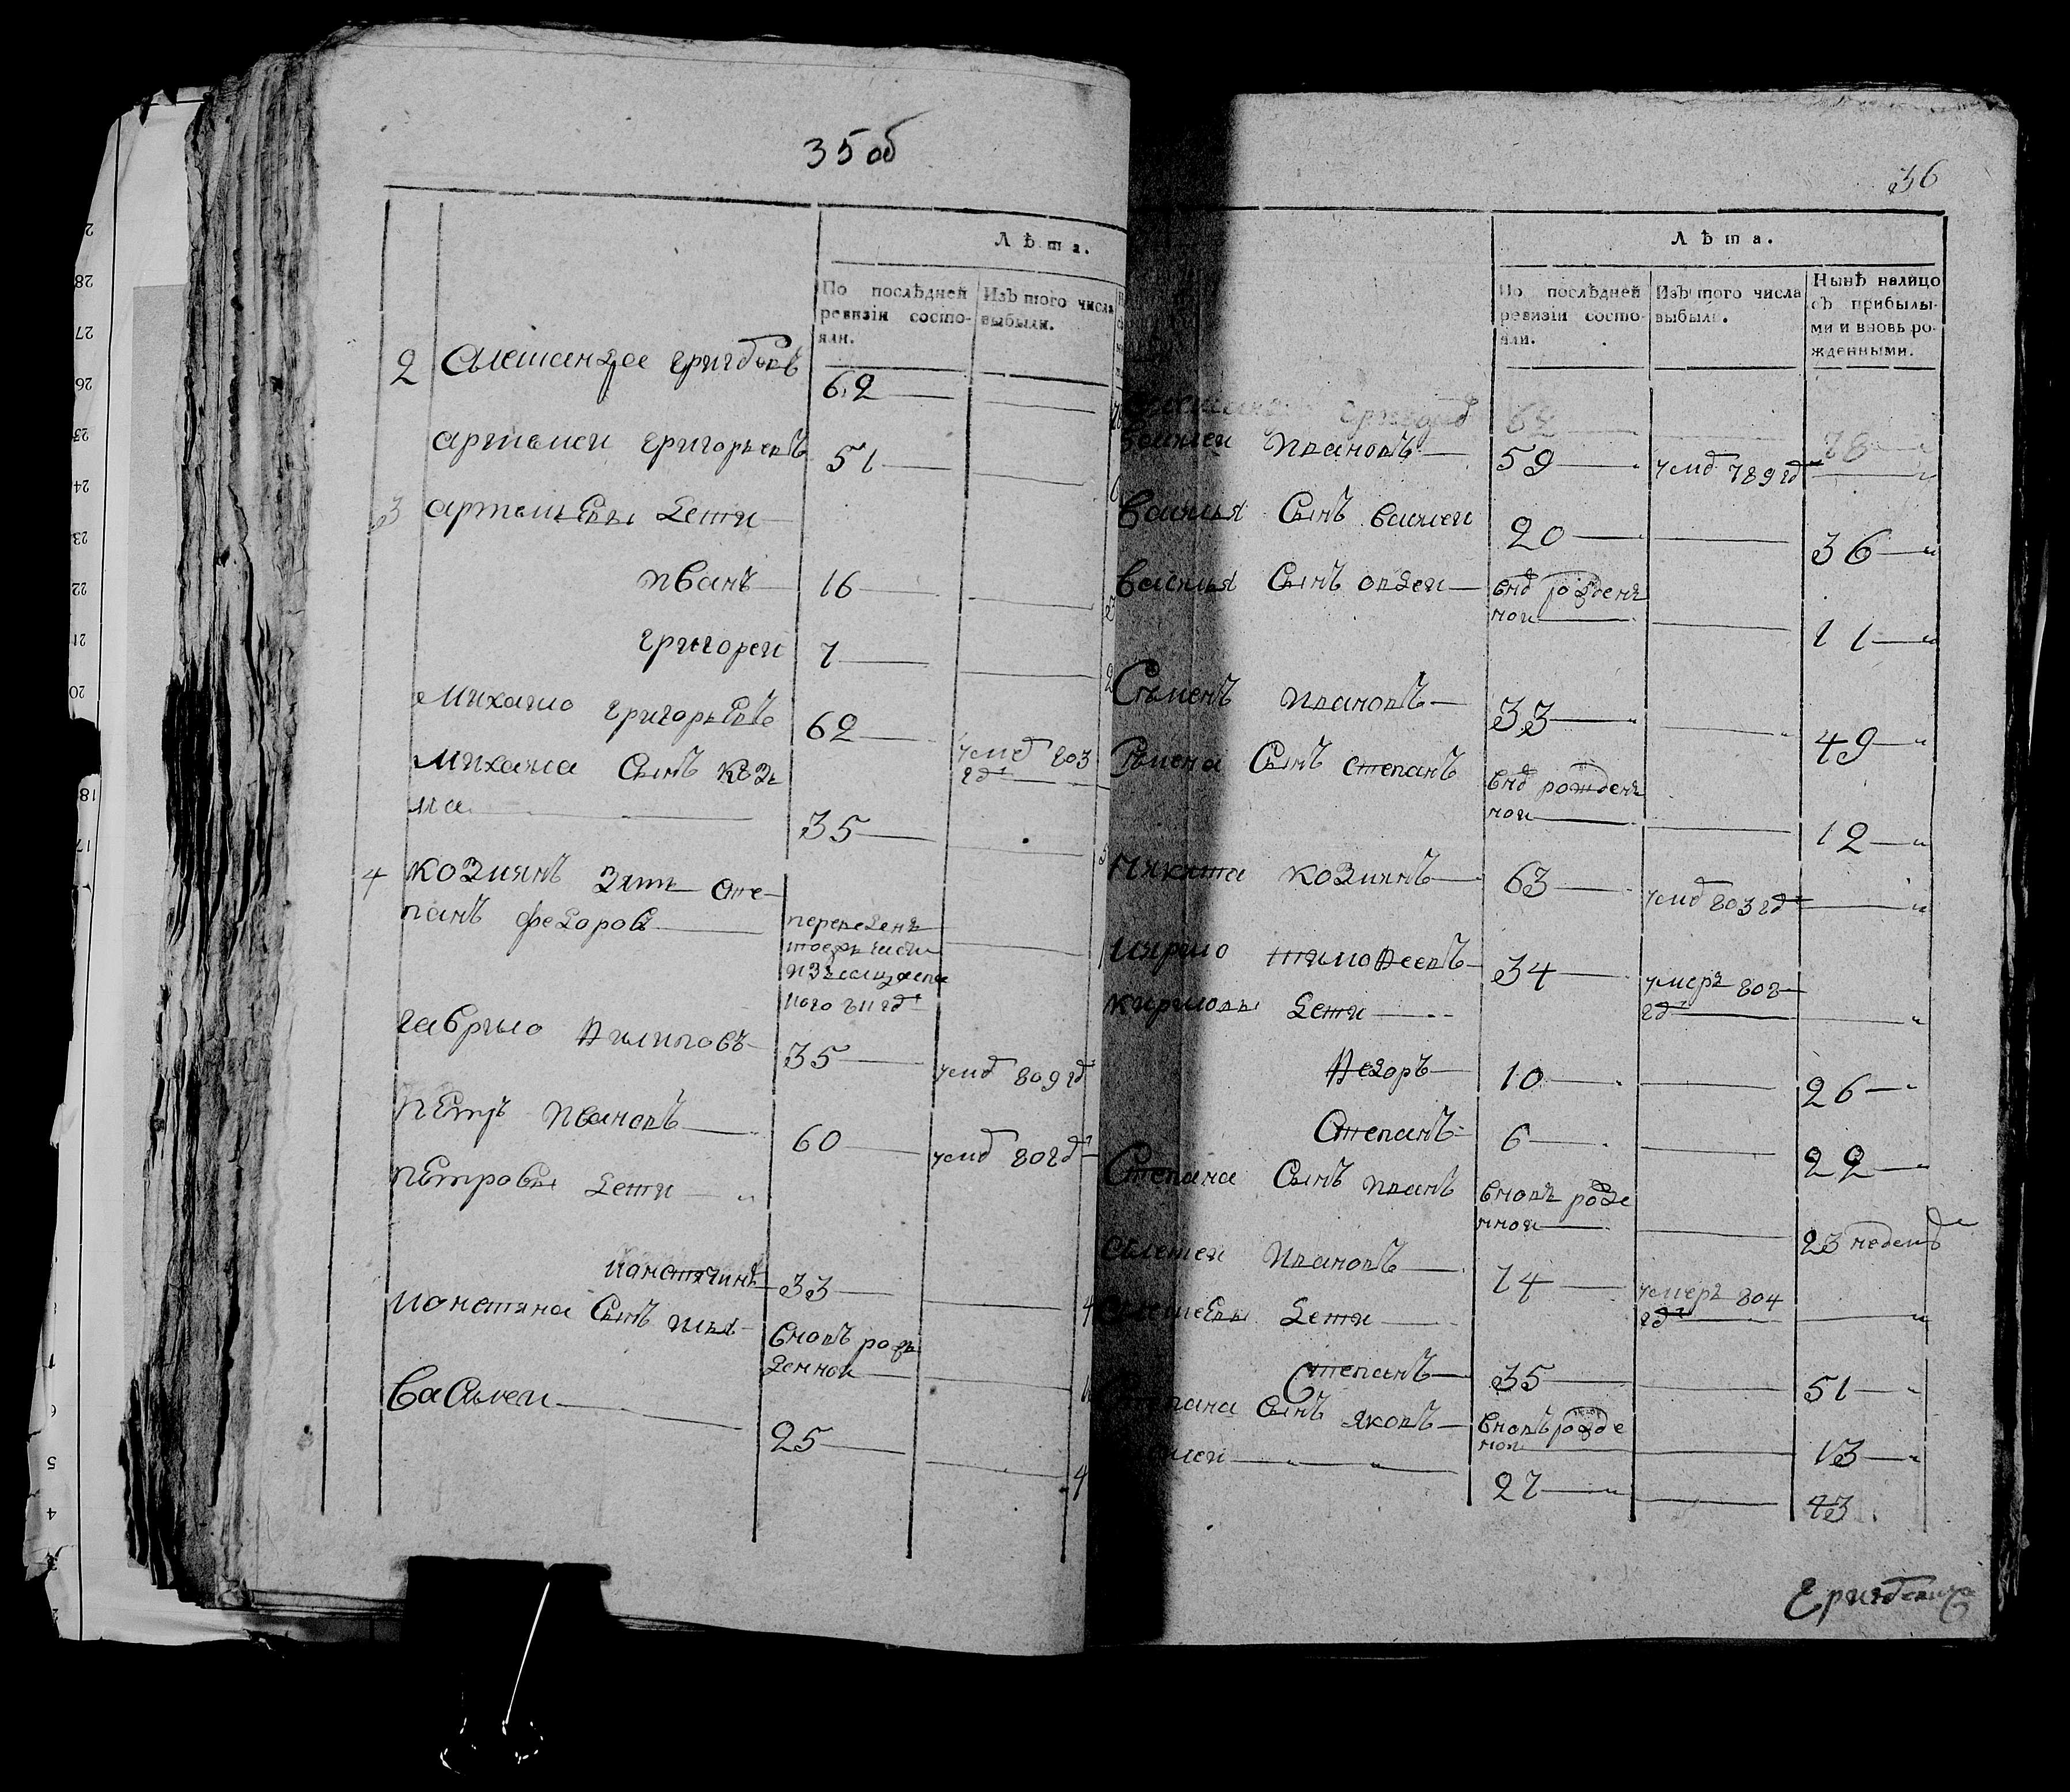 35 об
Лѣта.
По послѣдней ревизіи состояли.
Изъ того числа выбыли.
2 Алешандра григорьевъ 62
артемеи григорьевъ 51
3 артемьевы дети
иванъ 16
григореи 7
михаило григорьевъ 62 умер 803 гд
михаила сынъ козьма 35
4 козмянъ зять степанъ федоровъ
гаврило Филиповъ 35 умер 809 гд
петръ ивановъ 60 умер 80 гд
петровы дети
констянтинъ 33
констянтина сынъ илья вновь рожденной
василеи 25
36
Лѣта.
По послѣдней ревизіи состояли.
Изъ того числа выбыли.
Нынѣ налицо съ прибылыми и вновь рожденными.
василеи ивановъ 59 умер 789 гд
василья сынъ василеи 20 36
василья сынъ авдеи внов рожденной 11
Семенъ ивановъ 33 49
Семена сынъ степанъ внов рожденной 12
никита козмянъ 63 умер 803 гд
кирило тимоФеевъ 34 умеръ 808 гд
кириловы дети
Федоръ 10 26
Степанъ 6 22
Степана сынъ иванъ вновь рожденной 23 недели
алешеи ивановъ 74 умеръ 804 гд
алешеевы дети
Степанъ 35 51
степана сынъ яковъ вновь рожденой 13
27 43